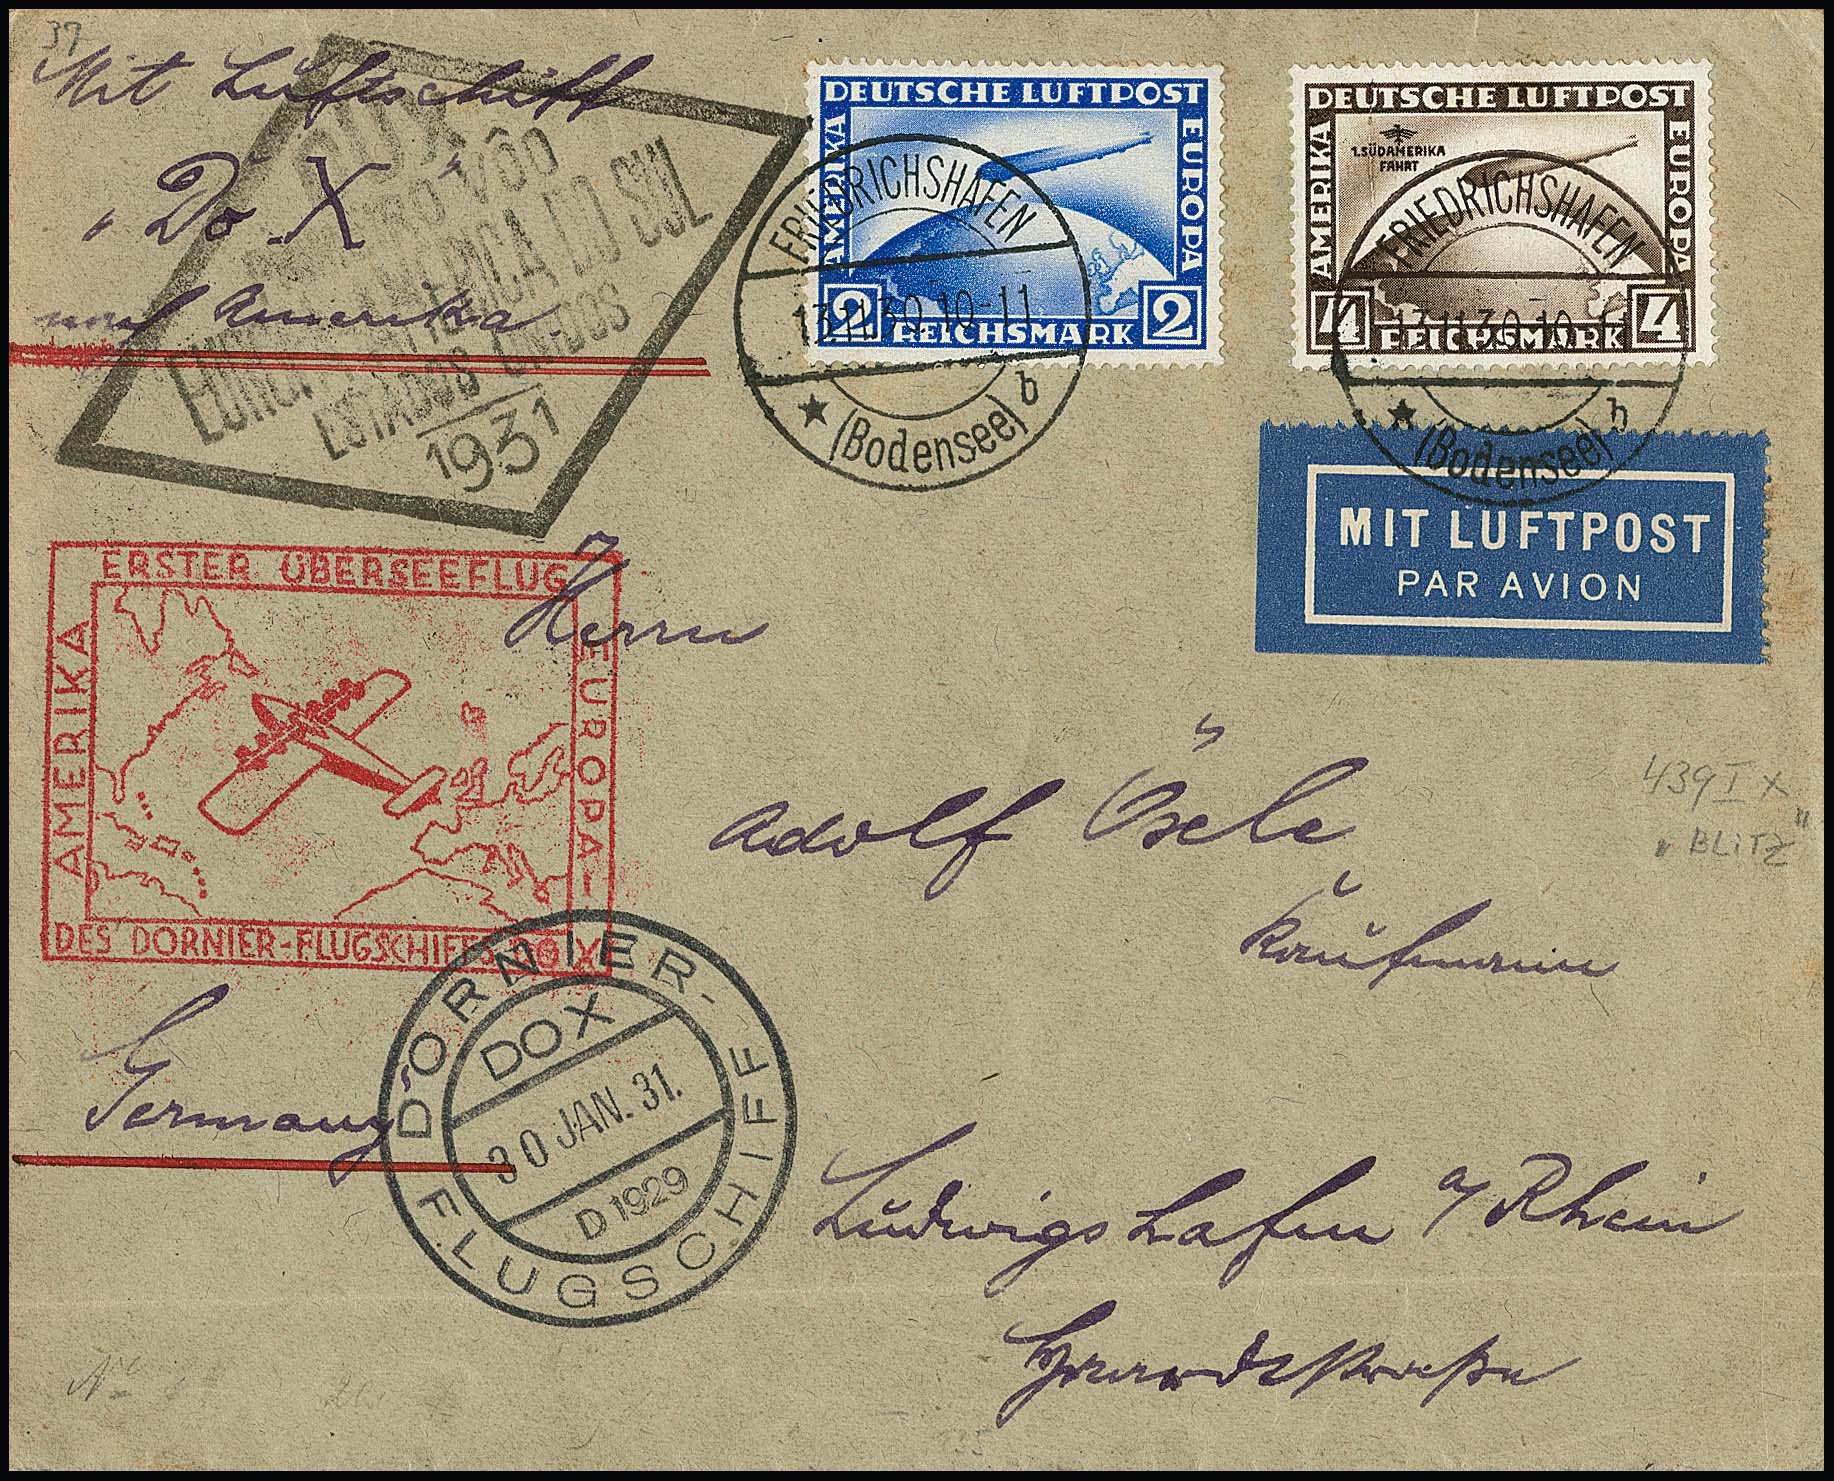 37
Mit Luftschiff
"Do X"
nach Amerika
DOX
VÔO
AMERICA DO SUL
ESTADOS UNIDOS
1931
DEUTSCHE LUFTPOST
AMERIKA
EUROPA
2 REICHSMARK 2
FRIEDRICHSHAFEN
13.11.30.10-11
(Bodensee) b
DEUTSCHE LUFTPOST
AMERIKA
EUROPA
1.SÜDAMERIKA
FAHRT
4 REICHSMARK 4
FRIEDRICHSHAFEN
13.11.30.10-11
(Bodensee) b
MIT LUFTPOST
PAR AVION
ERSTER ÜBERSEEFLUG
AMERIKA
EUROPA-
DES DORNIER-FLUGSCHIFFS DO X
Herrn
Adolf Ösele
Kaufmann
439 I x
"BLITZ"
Germany
DORNIER-
DOX
30 JAN. 31.
D1929
FLUGSCHIFF
Ludwigshafen a/Rhein